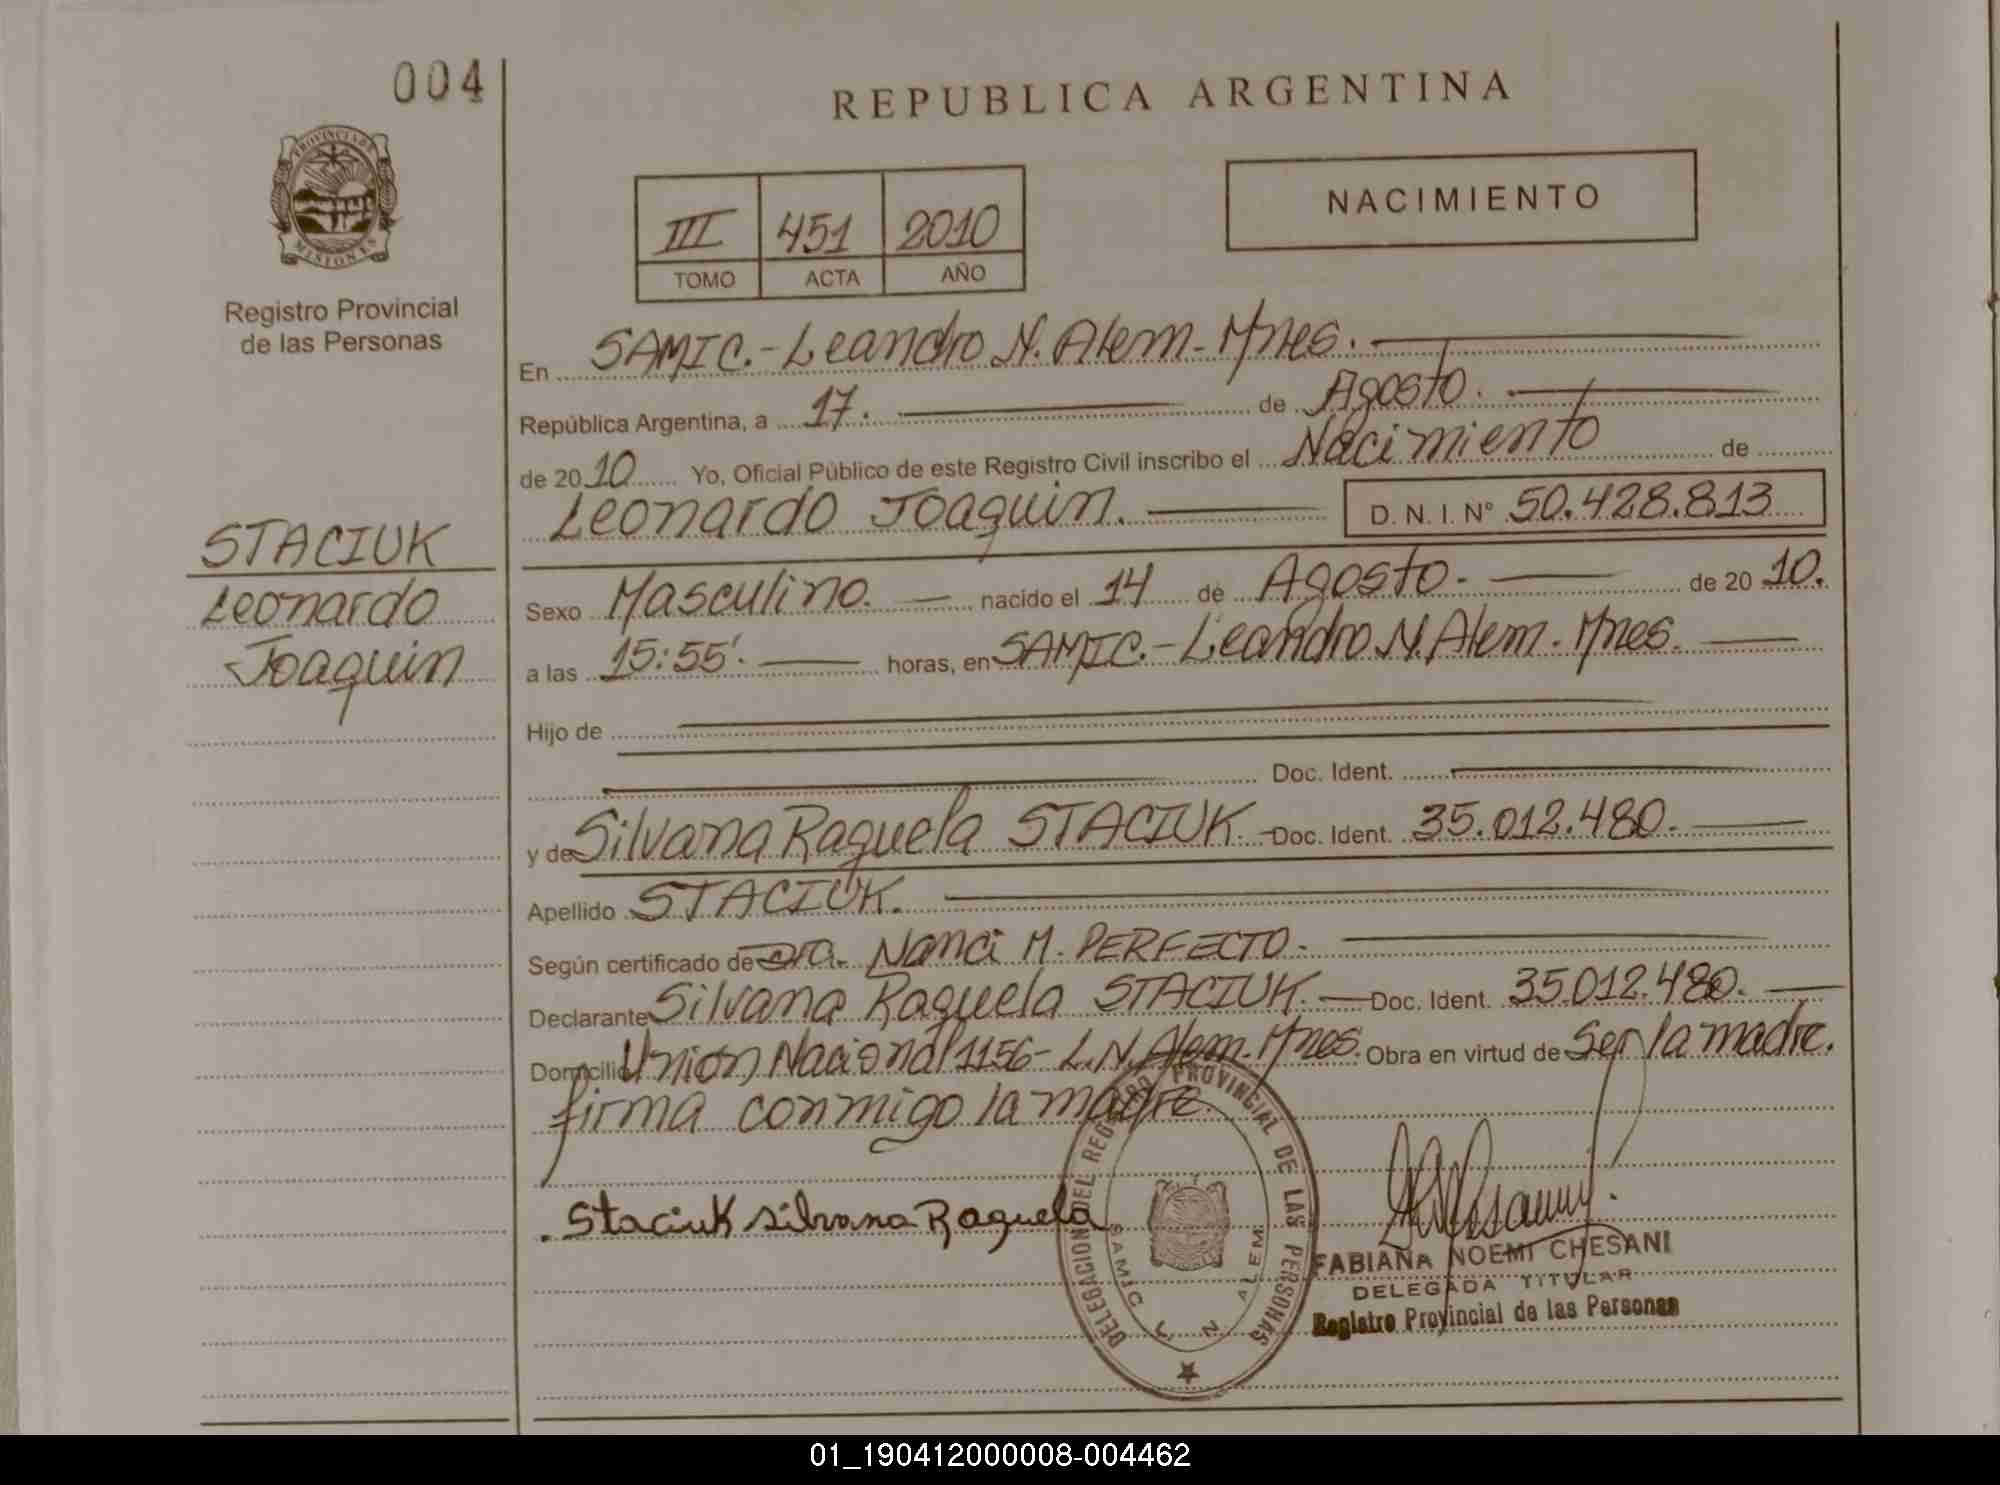 004
PROVINCIA DE
MISIONES
Registro Provincial
de las Personas
STACIUK
Leonardo
Joaquin
REPUBLICA ARGENTINA
III 451 2010
TOMO ACTA AÑO
NACIMIENTO
En SAMIC.- Leandro N. Alem - Mnes.
República Argentina, a 17. de Agosto.
de 2010 Yo, Oficial Público de este Registro Civil inscribo el Nacimiento de
Leonardo Joaquin. D. N. I. Nº 50.428.813
Sexo Masculino. nacido el 14 de Agosto. de 20 10.
a las 15:55'. horas, en SAMIC.- Leandro N. Alem. Mnes.
Hijo de
Doc. Ident.
y de Silvana Raquela STACIUK. Doc. Ident. 35.012.480.
Apellido STACIUK.
Según certificado de Dra. Nanci M. PERFECTO.
Declarante Silvana Raquela STACIUK. Doc. Ident. 35.012.480.
Domicilio Union Nacional 1156 - L.N. Alem. Mnes. Obra en virtud de Ser la madre.
firma conmigo la madre.
Staciuk Silvana Raquela
DELEGACION DEL REGISTRO PROVINCIAL DE LAS PERSONAS
SAMIC L. N. ALEM
FABIANA NOEMI CHESANI
DELEGADA TITULAR
Registro Provincial de las Personas
01_190412000008-004462